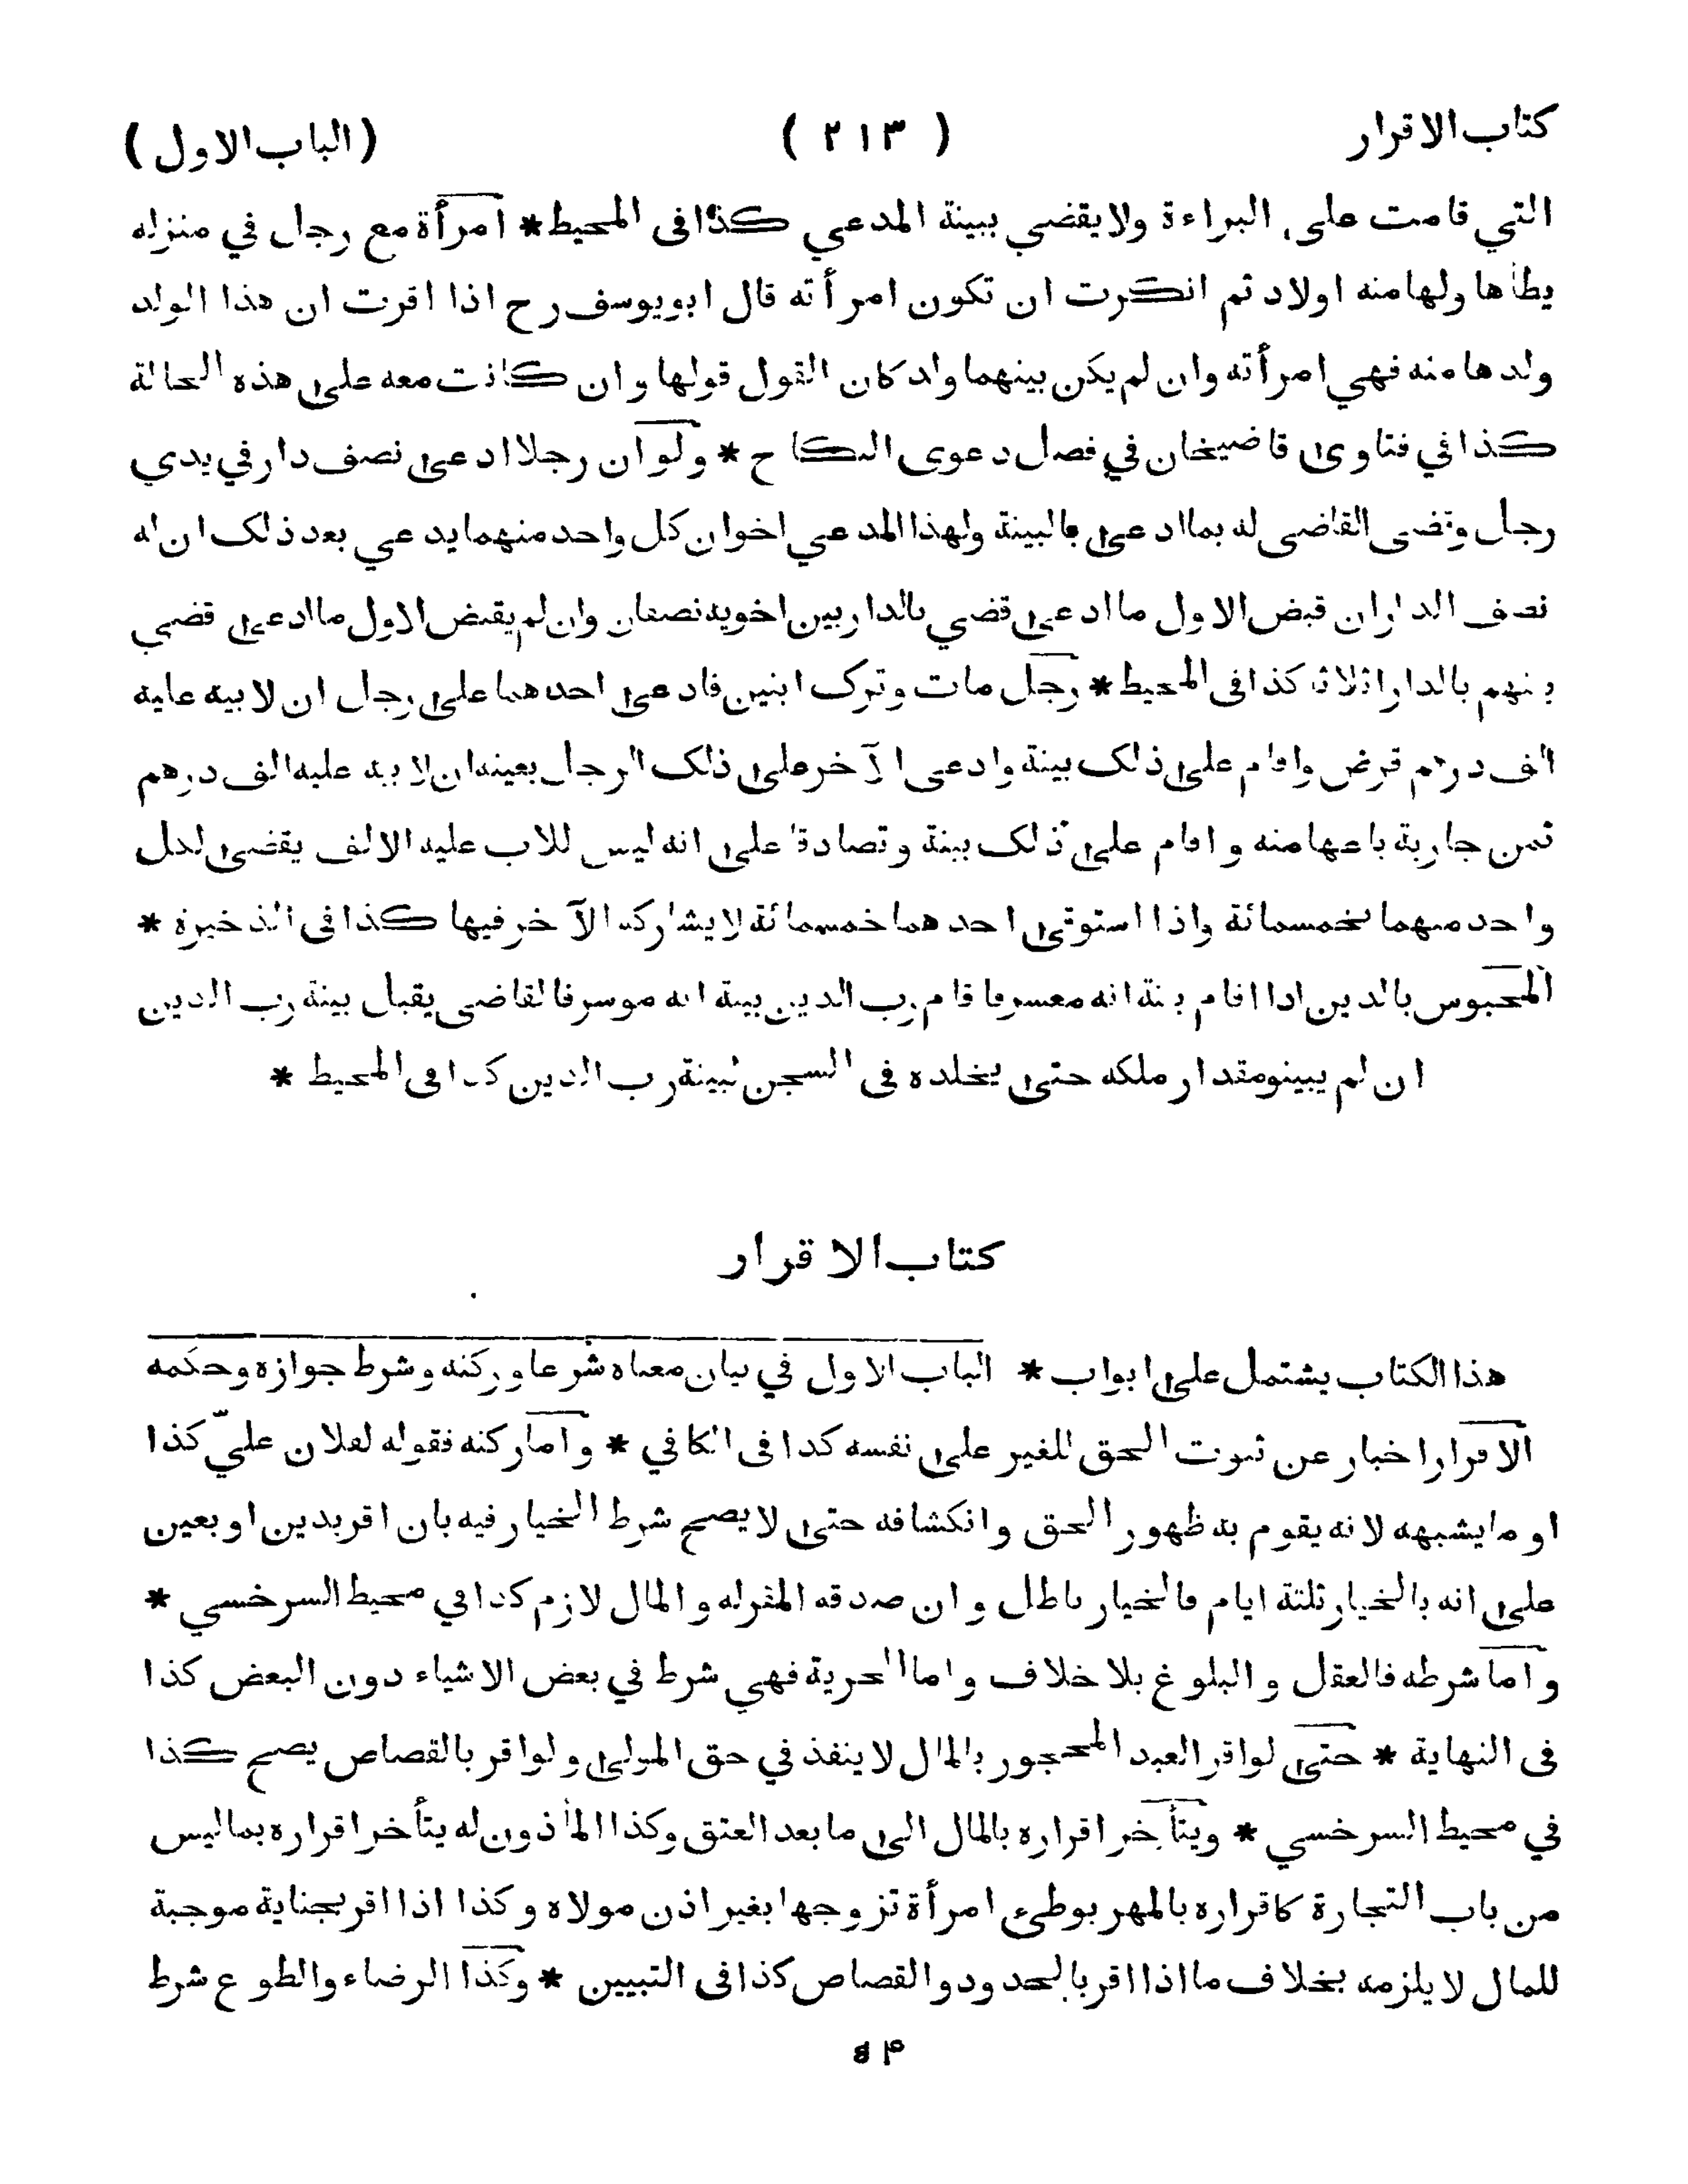 كتاب الاقرار
( ٢١٣ )
(الباب الاول)
التي قامت على البراءة ولايقضى ببينة المدعي كذا فى المحيط * امرأة مع رجل في منزله
يطأها ولها منه اولاد ثم انكرت ان تكون امرأته قال ابويوسف رح اذا اقرت ان هذا الولد
ولدها منه فهي امرأته وان لم يكن بينهما ولد كان القول قولها وان كانت معه على هذه الحالة
كذا في فتاوى قاضيخان في فصل دعوى النكاح * ولو ان رجلا ادعى نصف دار في يدي
رجل وقضى القاضى له بما ادعى بالبينة ولهذا المدعي اخوان كل واحد منهما يدعي بعد ذلك ان له
نصف الدار ان قبض الاول ما ادعى قضي بالدار بين اخويه نصفان وان لم يقبض الاول ما ادعى قضي
بينهم بالدار اثلاثا كذا فى المحيط * رجل مات وترك ابنين فادعى احدهما على رجل ان لابيه عليه
الف درهم قرض واقام على ذلك بينة وادعى الآخر على ذلك الرجل بعينه ان لابيه عليه الف درهم
ثمن جارية باعها منه و اقام على ذلك بينة وتصادقا على انه ليس للاب عليه الا الف يقضى لكل
واحد منهما بخمسمائة واذا استوفى احدهما خمسمائة لايشاركه الآخر فيها كذا فى الذخيرة *
المحبوس بالدين اذا اقام بينة انه معسر فاقام رب الدين بينة انه موسر فالقاضى يقبل بينة رب الدين
ان لم يبينو مقدار ملكه حتى يخلده فى السجن ببينة رب الدين كذا فى المحيط *
كتاب الاقرار
هذا الكتاب يشتمل على ابواب * الباب الاول في بيان معناه شرعا وركنه وشرط جوازه وحكمه
الاقرار اخبار عن ثبوت الحق للغير على نفسه كذا فى الكافي * واما ركنه فقوله لفلان عليّ كذا
او مايشبهه لانه يقوم به ظهور الحق وانكشافه حتى لايصح شرط الخيار فيه بان اقر بدين او بعين
على انه بالخيار ثلثة ايام فالخيار باطل و ان صدقه المقرله و المال لازم كذا في محيط السرخسي *
واما شرطه فالعقل و البلوغ بلا خلاف واما الحرية فهي شرط في بعض الاشياء دون البعض كذا
فى النهاية * حتى لواقر العبد المحجور بالمال لاينفذ في حق المولى ولواقر بالقصاص يصح كذا
في محيط السرخسي * ويتأخر اقراره بالمال الى مابعد العتق وكذا المأذون له يتأخر اقراره بماليس
من باب التجارة كاقراره بالمهر بوطئ امرأة تزوجها بغير اذن مولاه وكذا اذا اقر بجناية موجبة
للمال لايلزمه بخلاف ما اذا اقر بالحدود والقصاص كذا فى التبيين * وكذا الرضاء والطوع شرط